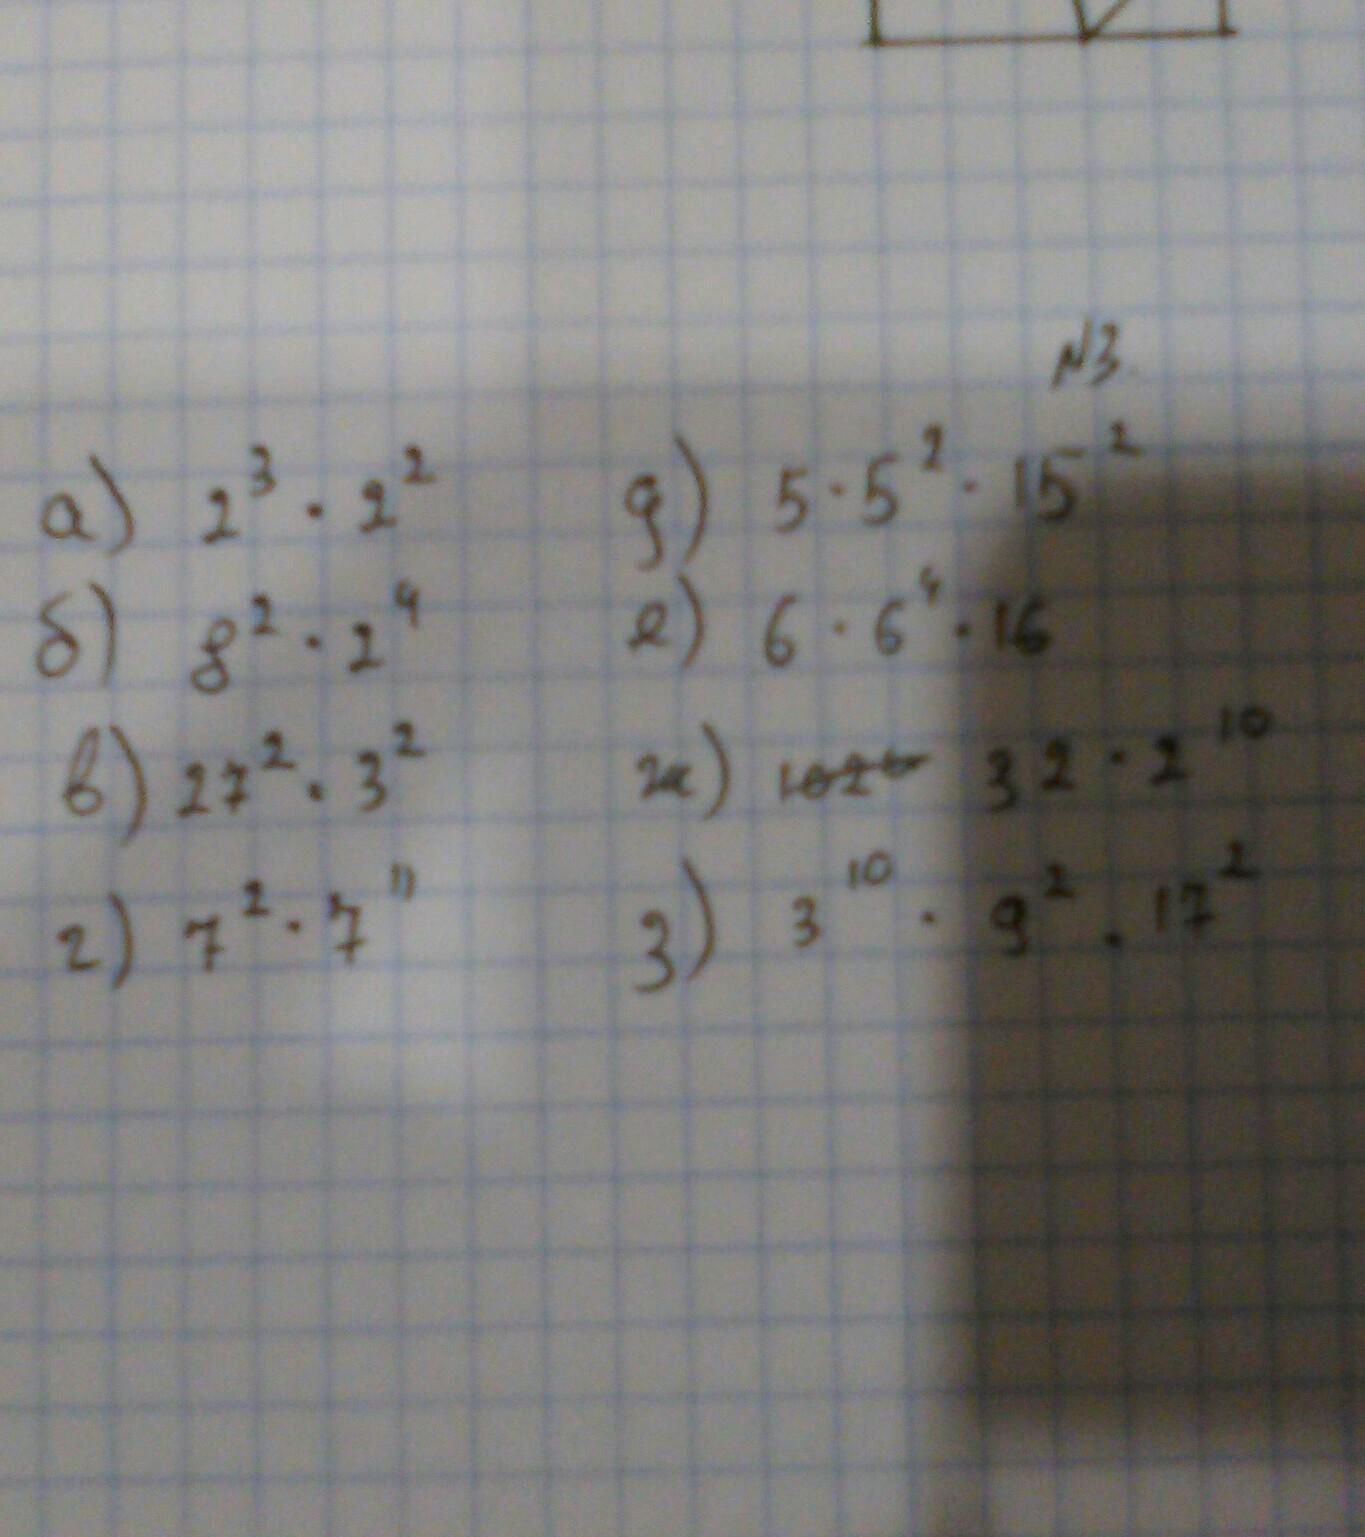 №3.
а) 2³ · 2²
б) 8² · 2⁴
в) 27² · 3²
г) 7² · 7¹¹
д) 5 · 5² · 15²
е) 6 · 6⁴ · 16
ж) 32 · 2¹⁰
з) 3¹⁰ · 9² · 17²